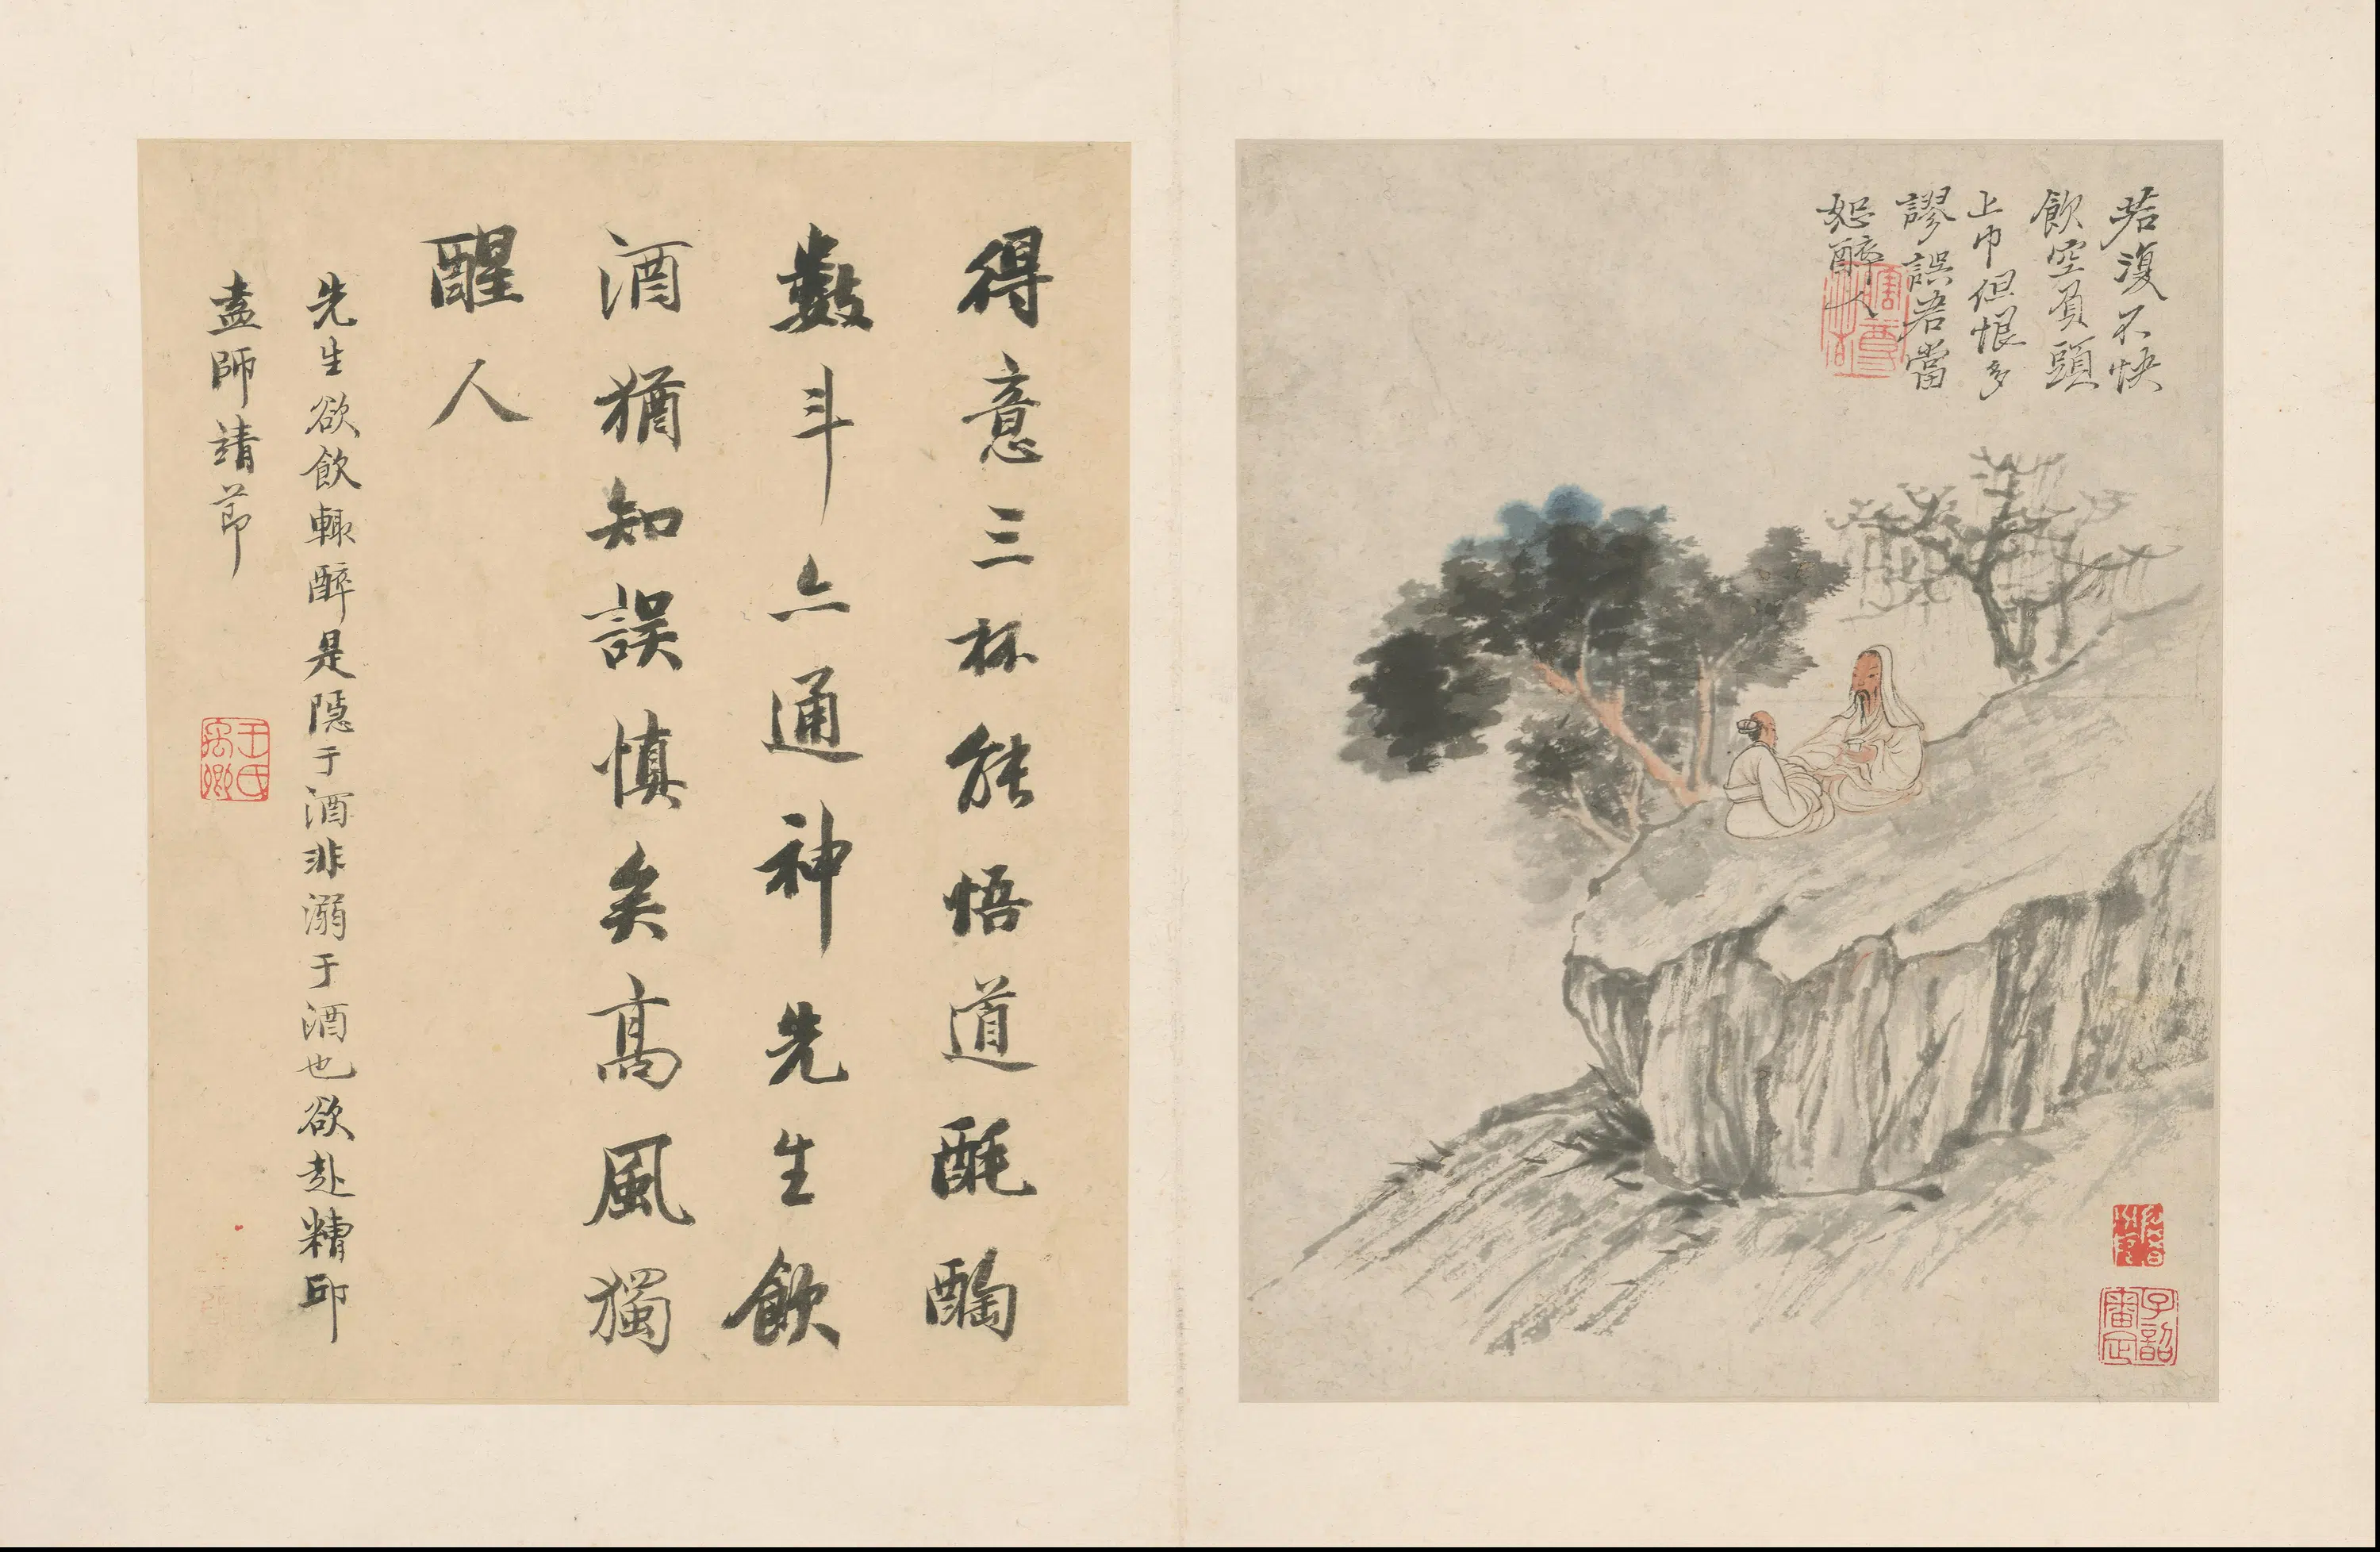 若復不快
飲空負頭
上巾但恨多
謬誤君當
恕醉人
子韶審定
得意三杯能悟道酕醄
數斗亦通神先生飲
酒猶知誤慎矣高風獨
醒人
先生欲飲輒醉是隱于酒非溺于酒也欲赴糟邱
盍師靖節